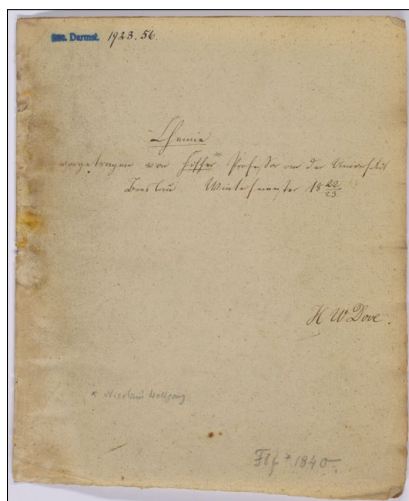 Slg. Darmst. 1923.56.
Chemie
vorgetragen von Fischer Professor an der Universität
Breslau Wintersemester 18 22/23
H W Dove.
* Nicolaus Wolfgang
F1f * 1840